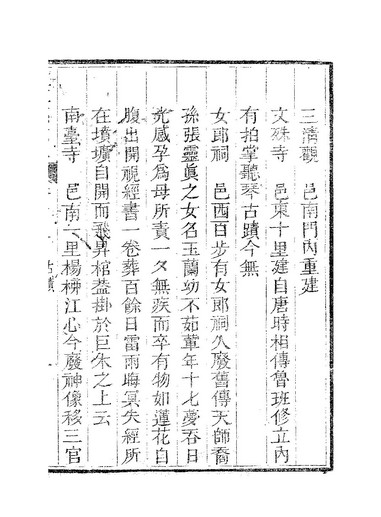 三清觀　邑南門內重建
文殊寺　邑東十里建自唐時相傳魯班修立內
有拍掌聽琴古蹟今無
女郎祠　邑西百步有女郎祠久廢舊傳天師裔
孫張靈真之女名玉蘭幼不茹葷年十七夢吞日
光感孕為母所責一夕無疾而卒有物如蓮花自
腹出開視經書一卷葬百餘日雷雨晦冥失經所
在墳壙自開而飛昇棺葢掛於巨木之上云
南臺寺　邑南一里楊柳江心今廢神像移三官
古蹟